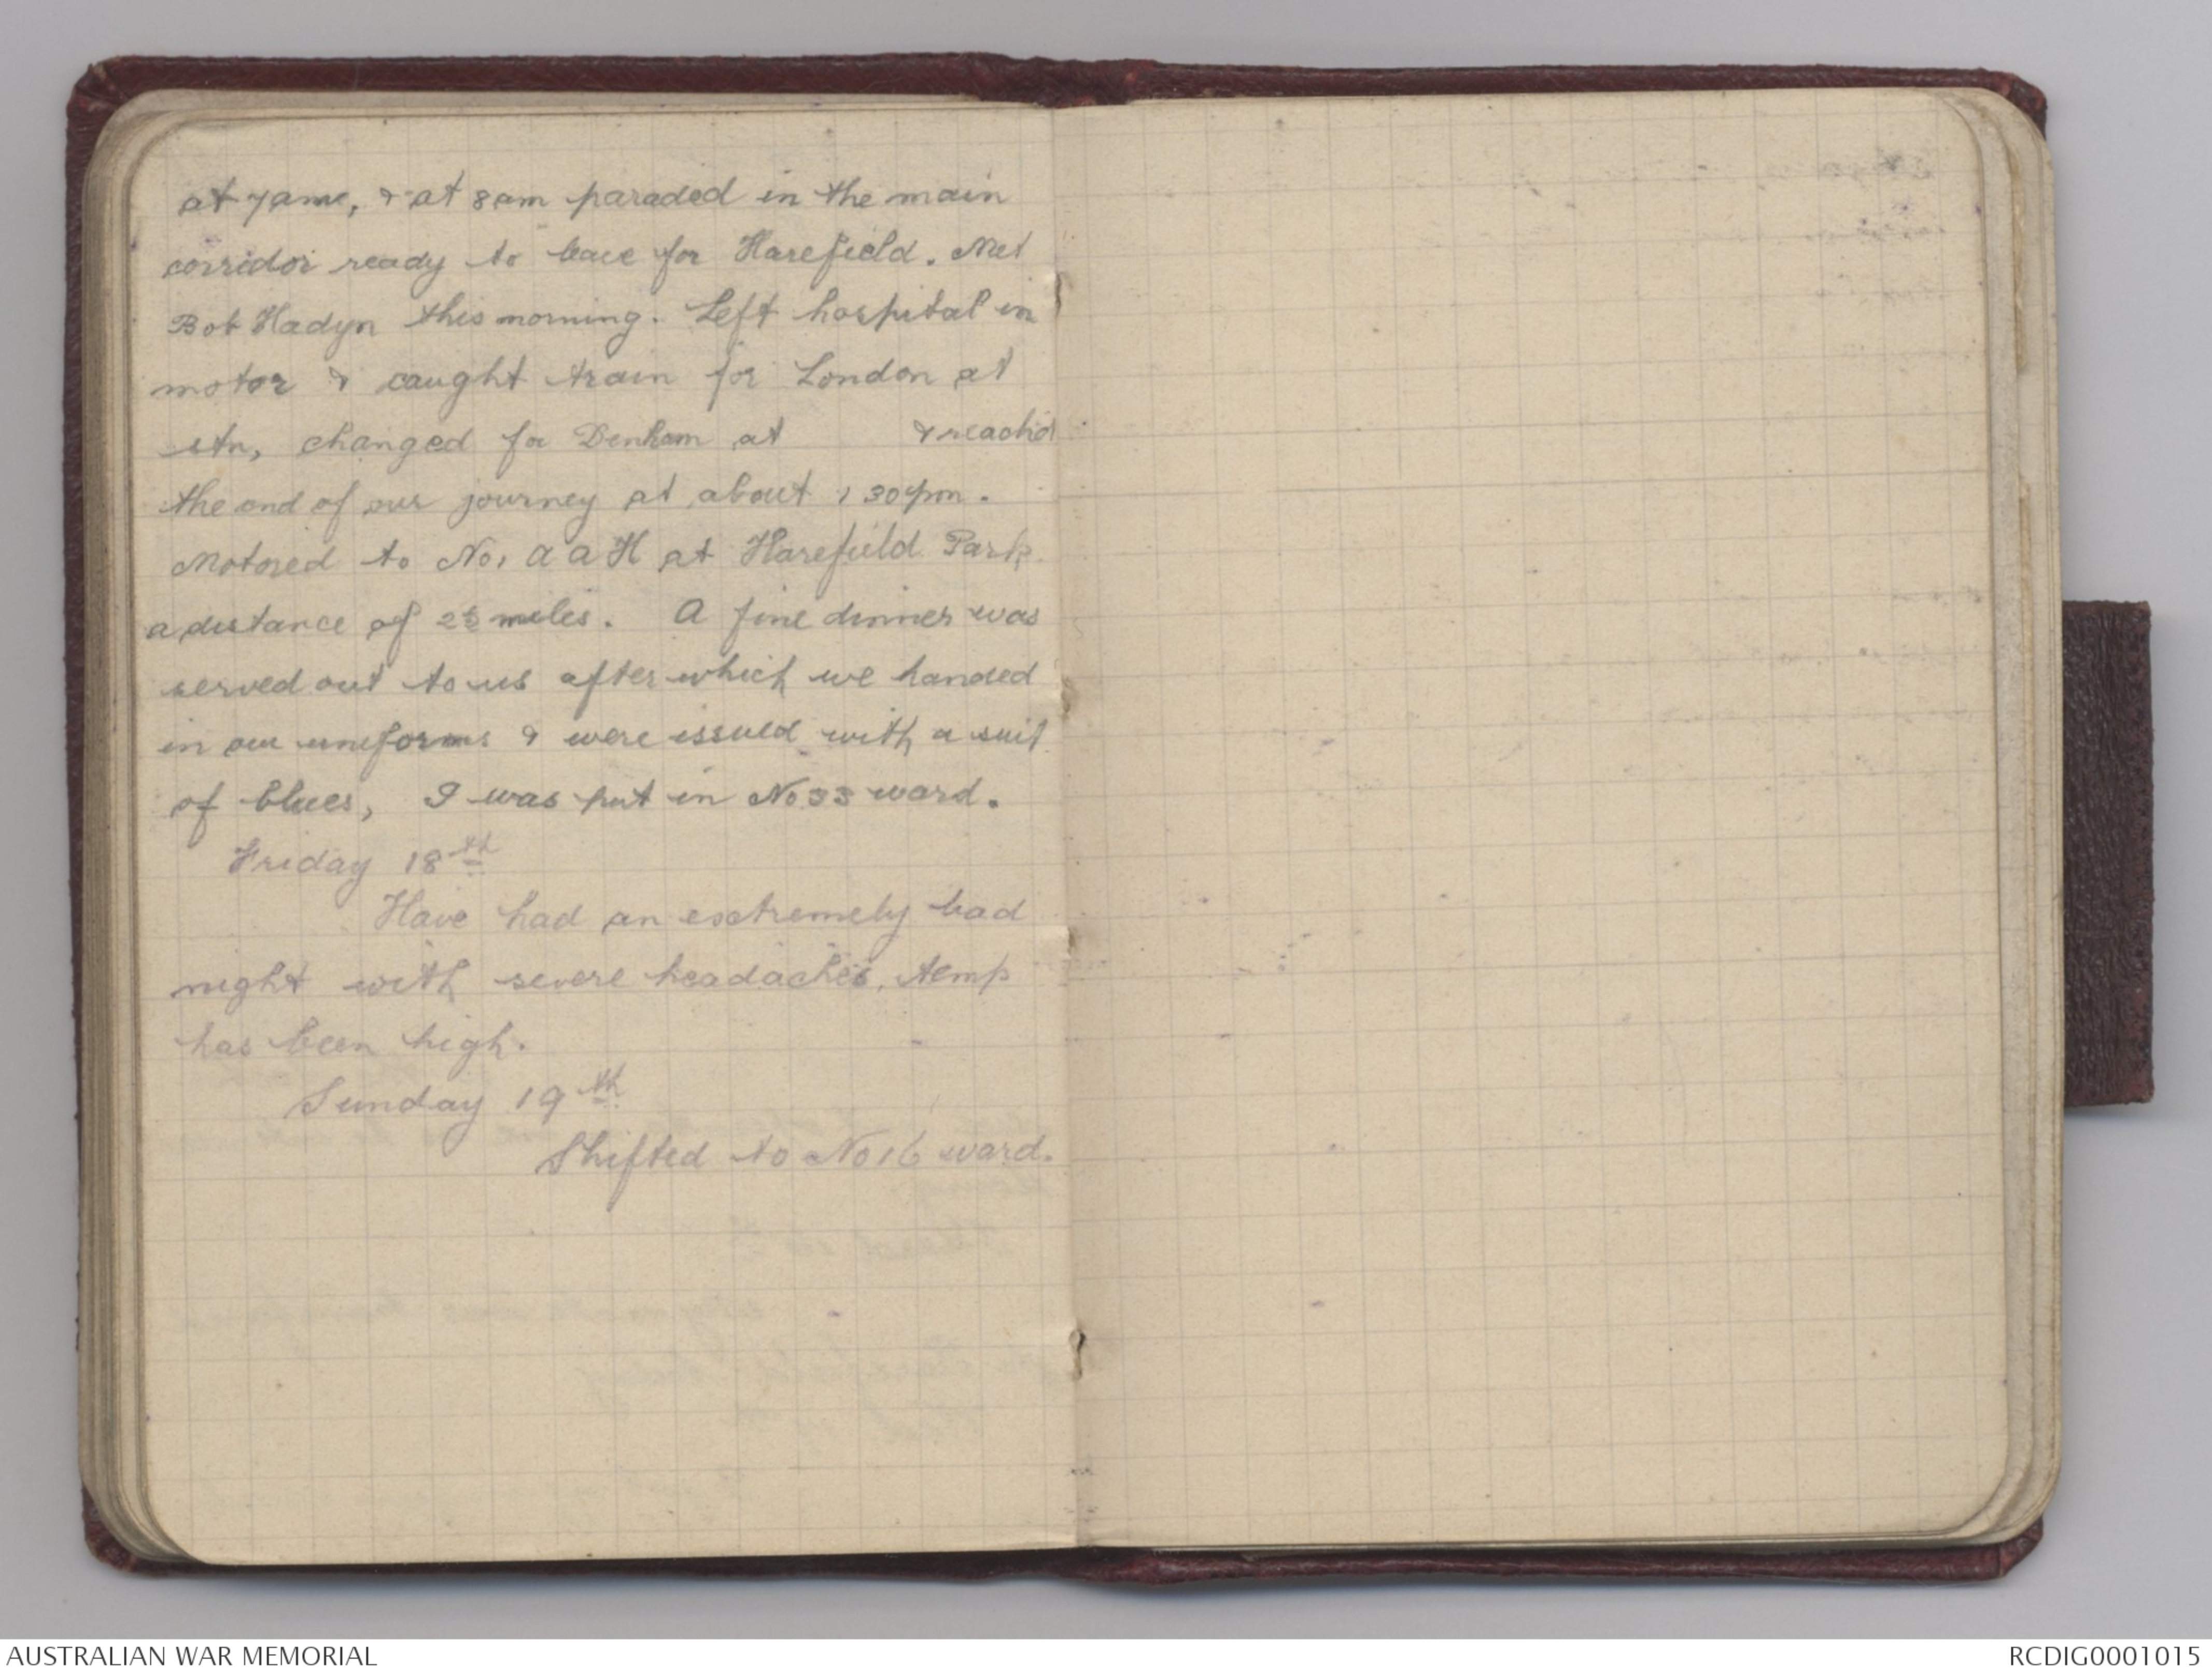 at 7am, & at 8am paraded in the main
corridor ready to leave for Harefield. Met
Bob Hadyn this morning. Left hospital in
motor & caught train for London at
stn, changed for Denham at & reach'd
the end of our journey at about 1 30pm.
Motored to No 1 A A H at Harefield Park
a distance of 2½ miles. A fine dinner was
served out to us after which we handed
in our uniforms & were issued with a suit
of blues, I was put in No 33 ward.
Friday 18th
Have had an extremely bad
night with severe headaches, temp
has been high.
Sunday 19th
Shifted to No 16 ward.
AUSTRALIAN WAR MEMORIAL
RCDIG0001015